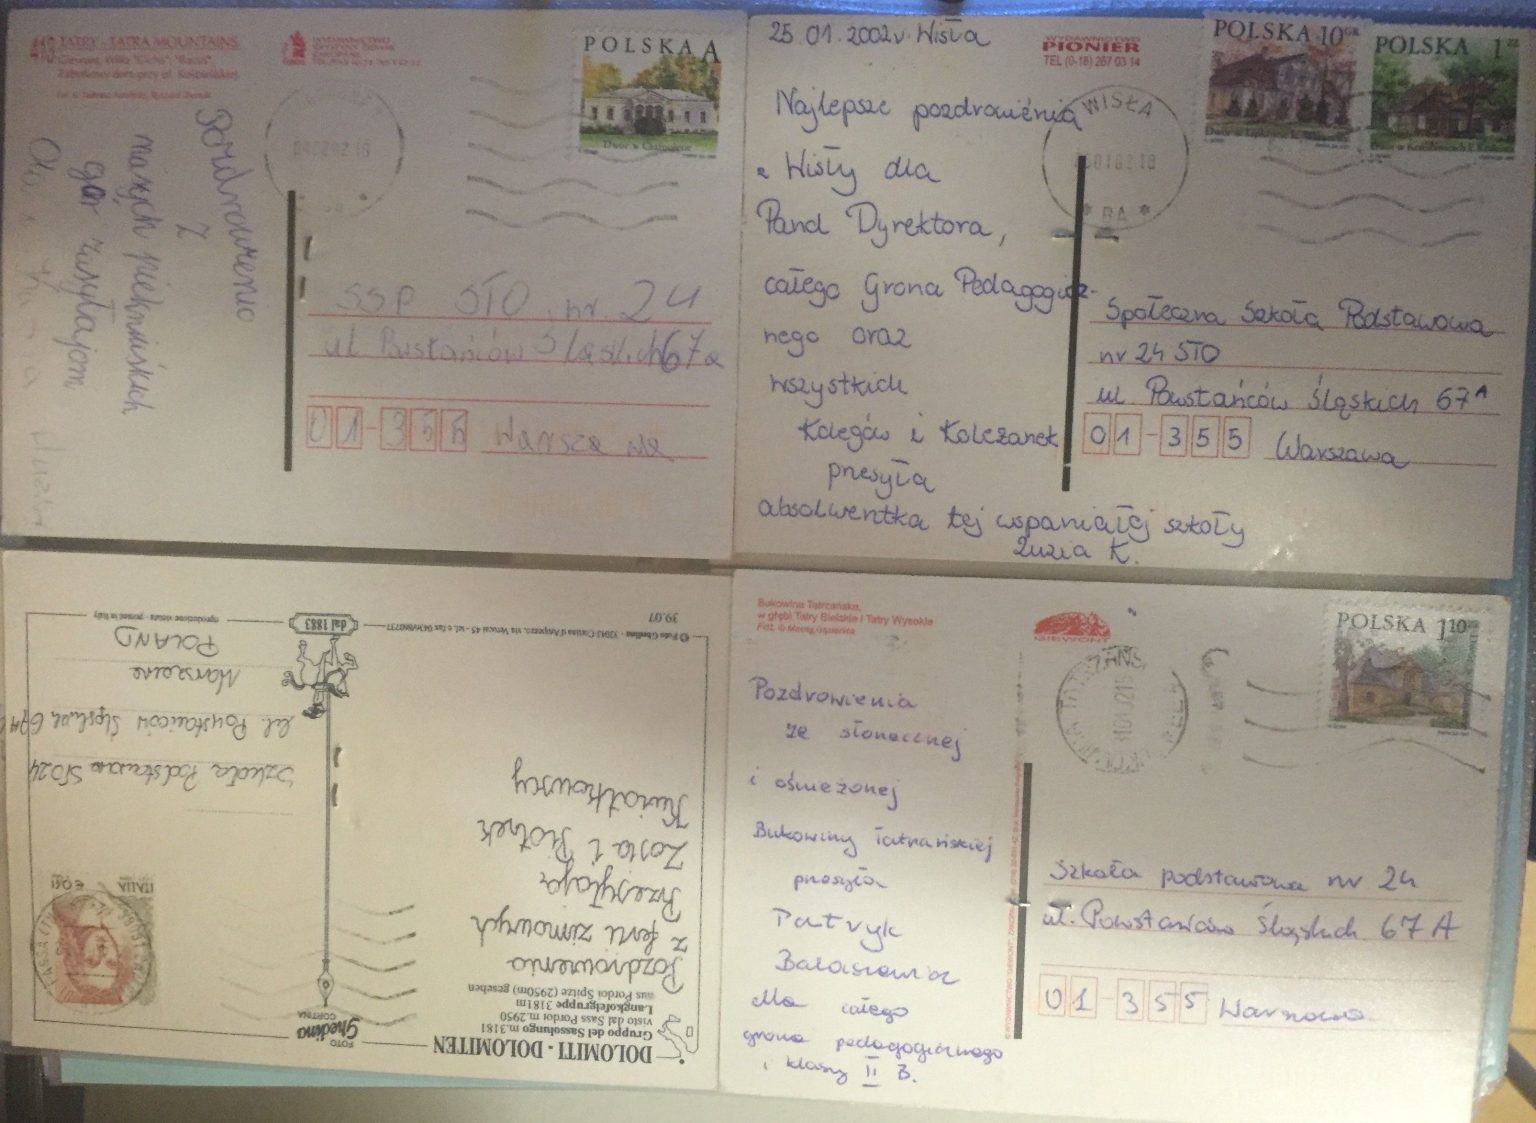 TATRY - TATRA MOUNTAINS
Giewont, Willa "Cicha", "Bacus",
Zabytkowy dom przy ul. Kościeliskiej
POLSKA A
Pozdrowienia
z
naszych pięknych
gór zasyłajom
Ola
SSP STO nr. 24
ul Powstańców Śląskich 67a
01-355 Warszawa
25.01.2002r. Wisła
WYDAWNICTWO
PIONIER
TEL (0-18) 287 03 14
POLSKA 10 GR
POLSKA 1 ZŁ
WISŁA
Najlepsze pozdrowienia
z Wisły dla
Pana Dyrektora,
całego Grona Pedagogicz-
nego oraz
wszystkich
Kolegów i Koleżanek
przesyła
absolwentka tej wspaniałej szkoły
Zuzia K.
Społeczna Szkoła Podstawowa
nr 24 STO
ul. Powstańców Śląskich 67A
01-355 Warszawa
DOLOMITI - DOLOMITEN
Gruppo del Sassolungo m.3181
visto dal Sass Pordoi m.2950
Langkofelgruppe 3181m
aus Pordoi Spitze (2950m) gesehen
FOTO
Ghedina
CORTINA
Pozdrowienia
z ferii zimowych
Przesyłają
Zosia i Piotrek
Kwiatkowscy
ITALIA € 0,41
Szkoła Podstawowa STO 24
ul. Powstańców Śląskich 67A
Warszawa
POLAND
dal 1883
39.07
riproduzione vietata - printed in Italy
Bukowina Tatrzańska,
w głębi Tatry Bielskie i Tatry Wysokie
GIEWONT
POLSKA 1 10 ZŁ
Pozdrowienia
ze słonecznej
i ośnieżonej
Bukowiny Tatrzańskiej
przesyła
Patryk
Balasiewicz
dla całego
grona pedagogicznego
i klasy II B.
Szkoła podstawowa nr 24
ul. Powstańców Śląskich 67A
01-355 Warszawa